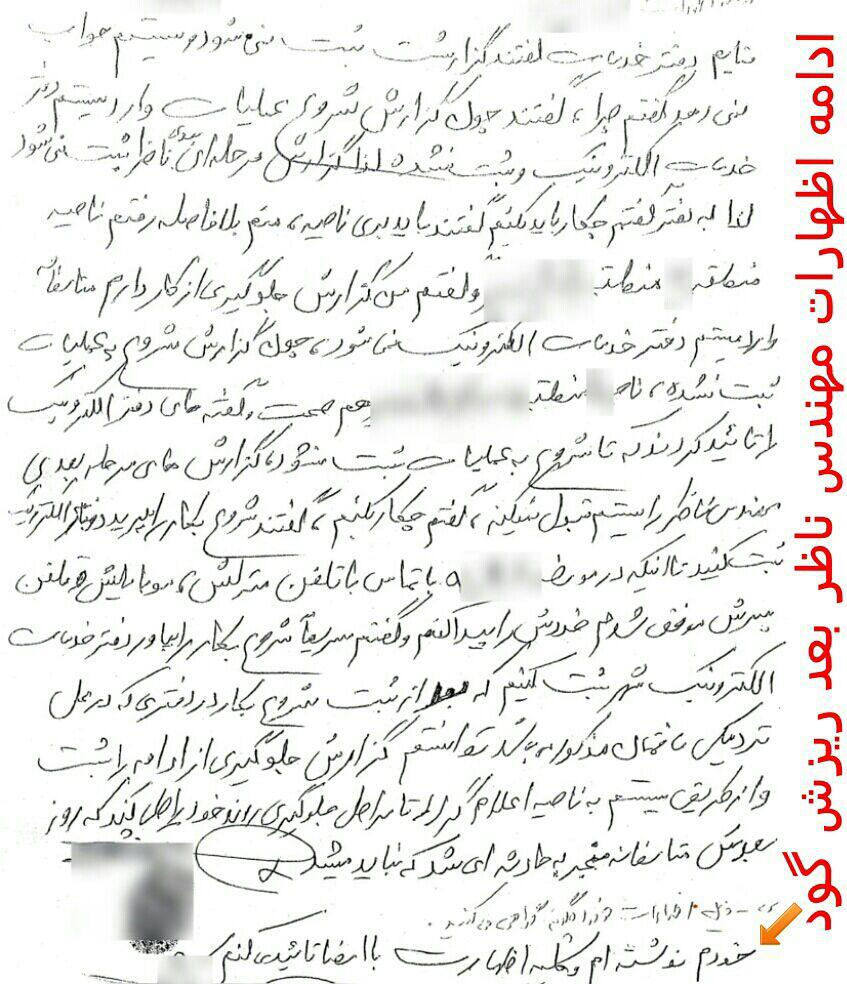 نمایم دفتر خدمات گفتند گزارشت ثبت نمی‌شود و سیستم جواب
نمی دهد گفتم چرا، گفتند چون گزارش شروع عملیات وارد سیستم دفتر
خدمات الکترونیک و ثبت نشده لذا گزارش مرحله‌ای بعدی ناظر ثبت نمی‌شود
لذا به دفتر گفتم چکار باید بکنم گفتند باید بری ناحیه، منم بلافاصله رفتم ناحیه
منطقه و گفتم من گزارش جلوگیری از کار دارم متاسفانه
وارد سیستم دفتر خدمات الکترونیک نمی‌شود، چون گزارش شروع به عملیات
ثبت نشده، ناحیه منطقه هم صحبت و گفته های دفتر الکترونیک
را تائید کردند که تا شروع به عملیات ثبت نشود، گزارش های مرحله بعدی
مهندس ناظر را سیستم قبول نمیکنه، گفتم چکار بکنم، گفتند شروع بکار را ببرید دفتر الکترونیک
ثبت کنید تا اینکه در مورخه با تماس با تلفن منزلش، موبایلش و تلفن
پسرش موفق شدم خودش را پیدا کنم و گفتم سریعاً شروع بکار را بیاور دفتر خدمات
الکترونیک شهر ثبت کنیم که بعد از ثبت شروع بکار در دفتری که در محل
نزدیکی ساختمان مذکور می باشد توانستم گزارش جلوگیری از ادامه را ثبت
و از طریق سیستم به ناحیه اعلام گردد تا مراحل جلوگیری روند خود را طی کند که روز
بعدش متاسفانه منجر به حادثه ای شد که نباید میشد
س - ذیل اظهارات خود را چگونه گواهی می‌کنید.
خودم نوشته ام و کلیه اظهارات با امضا تائید می کنم
ادامه اظهارات مهندس ناظر بعد ریزش گود